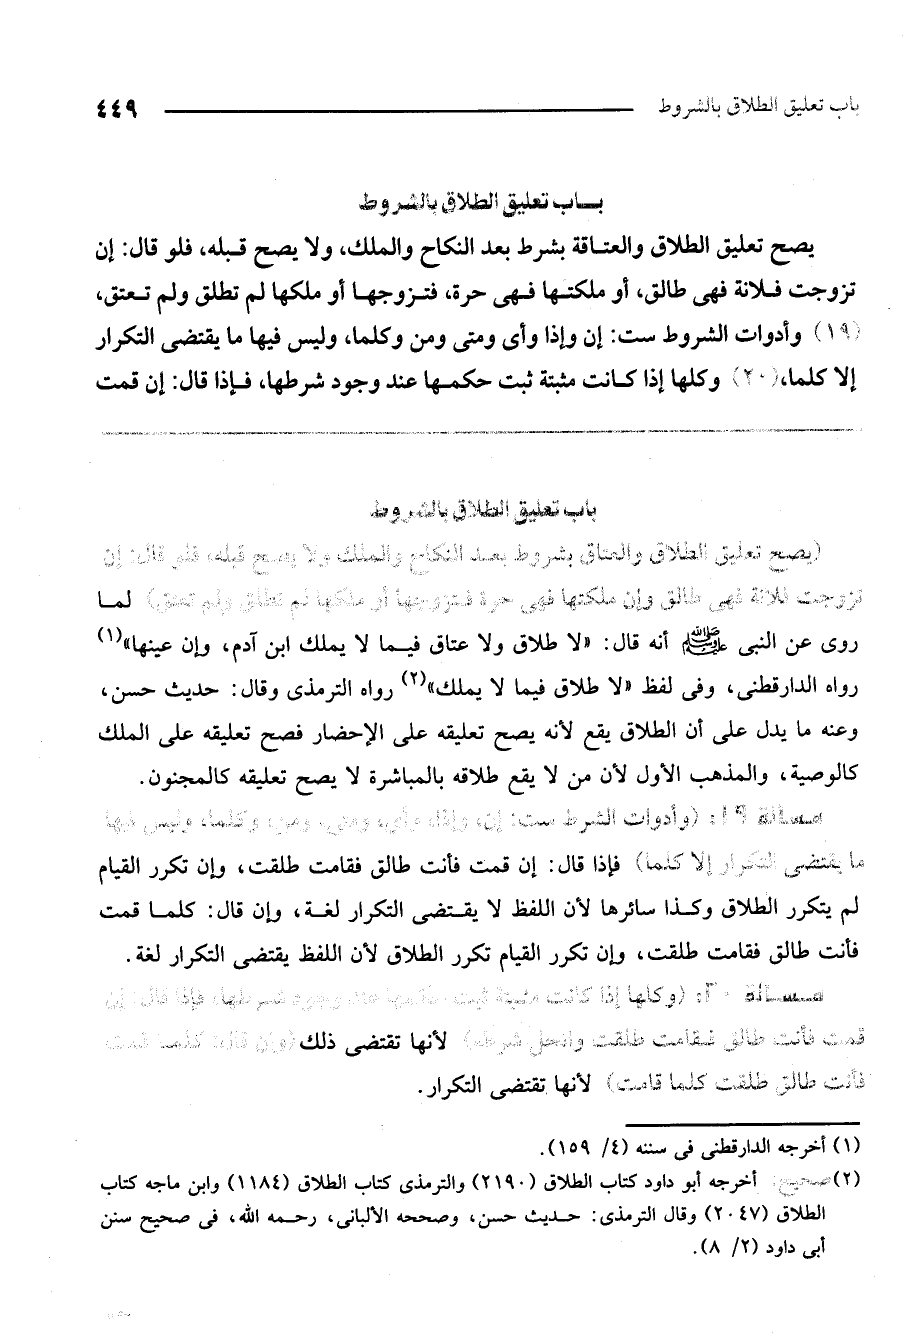 باب تعليق الطلاق بالشروط ٤٤٩
بـاب تعليق الطلاق بالشروط
يصح تعليق الطلاق والعتاقة بشرط بعد النكاح والملك، ولا يصح قبله، فلو قال: إن
تزوجت فلانة فهى طالق، أو ملكتها فهى حرة، فتزوجها أو ملكها لم تطلق ولم تعتق،
(١٩) وأدوات الشروط ست: إن وإذا وأى ومتى ومن وكلما، وليس فيها ما يقتضى التكرار
إلا كلما،(٢٠) وكلها إذا كانت مثبتة ثبت حكمها عند وجود شرطها، فإذا قال: إن قمت
باب تعليق الطلاق بالشروط
(يصح تعليق الطلاق والعتاق بشروط بعد النكاح والملك ولا يصح قبله، فلو قال: إن
تزوجت فلانة فهى طالق وإن ملكتها فهى حرة فتزوجها أو ملكها لم تطلق ولم تعتق) لما
روى عن النبى ﷺ أنه قال: «لا طلاق ولا عتاق فيما لا يملك ابن آدم، وإن عينها»(١)
رواه الدارقطنى، وفى لفظ «لا طلاق فيما لا يملك»(٢) رواه الترمذى وقال: حديث حسن،
وعنه ما يدل على أن الطلاق يقع لأنه يصح تعليقه على الإحضار فصح تعليقه على الملك
كالوصية، والمذهب الأول لأن من لا يقع طلاقه بالمباشرة لا يصح تعليقه كالمجنون.
مسالة ١٩: (وأدوات الشرط ست: إن، وإذا، وأى، ومتى، ومن، وكلما، وليس فيها
ما يقتضى التكرار إلا كلما) فإذا قال: إن قمت فأنت طالق فقامت طلقت، وإن تكرر القيام
لم يتكرر الطلاق وكذا سائرها لأن اللفظ لا يقتضى التكرار لغة، وإن قال: كلما قمت
فأنت طالق فقامت طلقت، وإن تكرر القيام تكرر الطلاق لأن اللفظ يقتضى التكرار لغة.
مسالة ٢٠: (وكلها إذا كانت مثبتة ثبت حكمها عند وجود شرطها، فإذا قال: إن
قمت فأنت طالق فقامت طلقت وانحل شرطه) لأنها تقتضى ذلك (وإن قال: كلما قمت
فأنت طالق طلقت كلما قامت) لأنها تقتضى التكرار.
(١) أخرجه الدارقطنى فى سننه (٤/ ١٥٩).
(٢) صحيح: أخرجه أبو داود كتاب الطلاق (٢١٩٠) والترمذى كتاب الطلاق (١١٨٤) وابن ماجه كتاب
الطلاق (٢٠٤٧) وقال الترمذى: حديث حسن، وصححه الألبانى، رحمه الله، فى صحيح سنن
أبى داود (٢/ ٨).